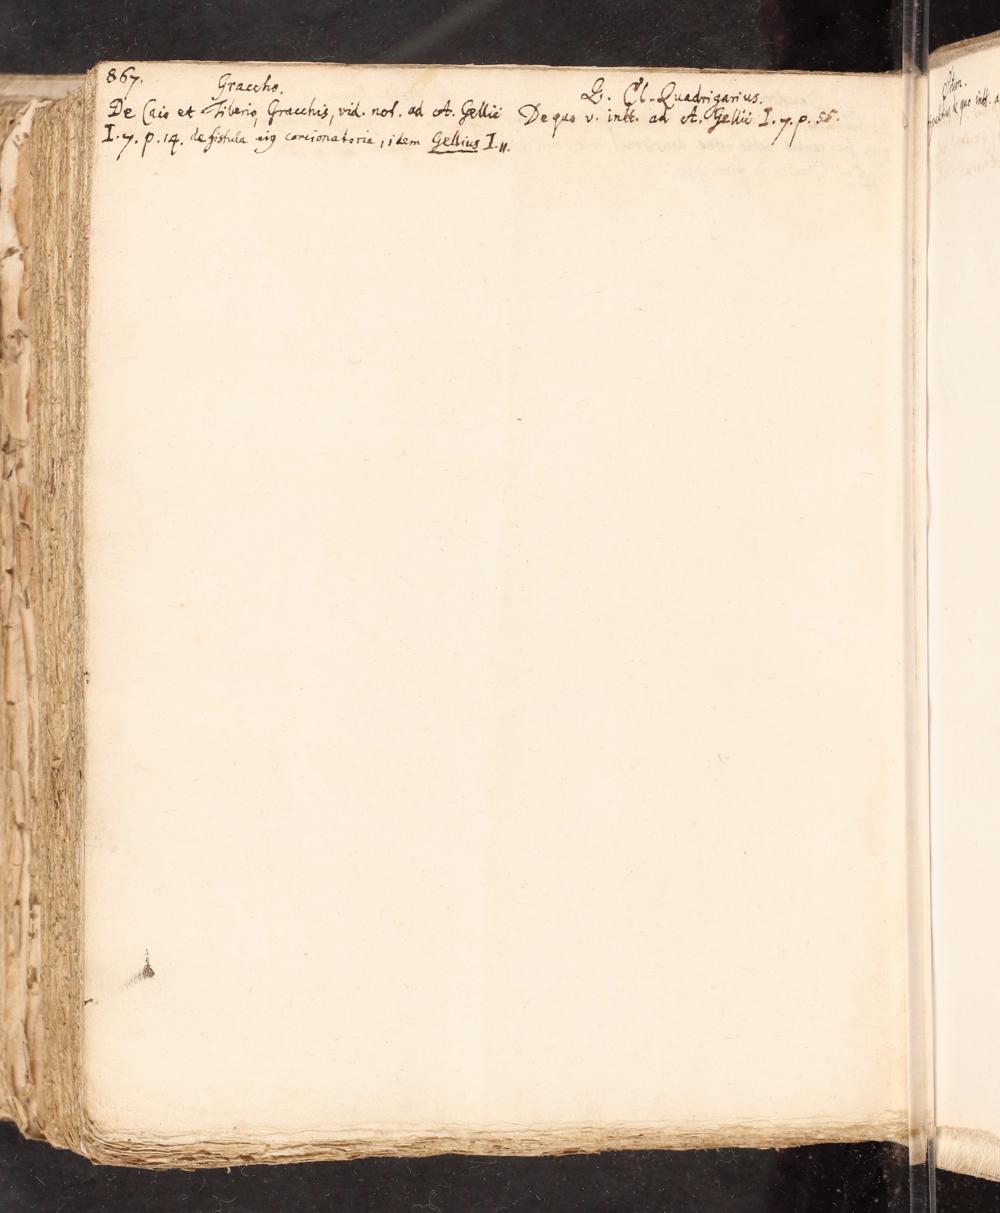 867.
Graccho.
De Caio et Tiberio, Gracchis, vid. not. ad A. Gellii
I. 7. p. 14. de fistula eiq concionatoria, idem Gellius I. 11.
Q. Cl. Quadrigarius.
De quo v. intt. ad A. Gellii I. 7. p. 55.